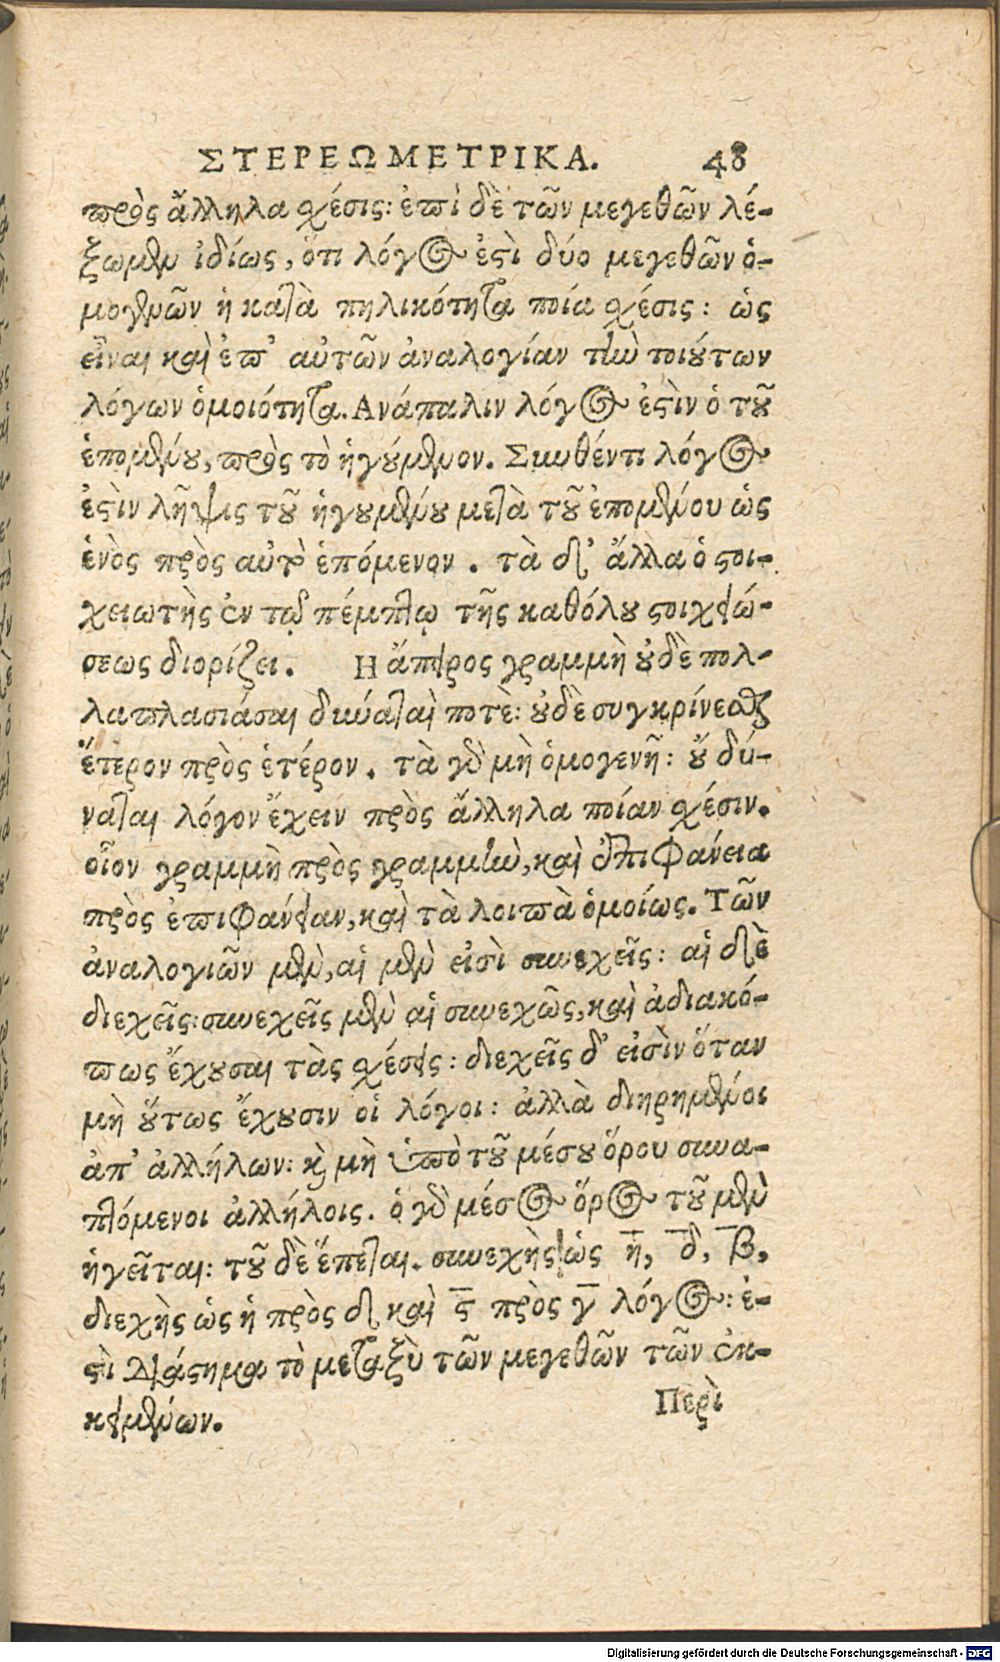 ΣΤΕΡΕΩΜΕΤΡΙΚΑ. 48
πρὸς ἄλληλα σχέσις: ἐπὶ δὲ τῶν μεγεθῶν λέ-
ξωμεν ἰδίως, ὅτι λόγος ἐστὶ δύο μεγεθῶν ὁ-
μογενῶν ἡ κατὰ πηλικότητα ποία σχέσις: ὡς
εἶναι καὶ ἐπ' αὐτῶν ἀναλογίαν τὴν τοιούτων
λόγων ὁμοιότητα. Ανάπαλιν λόγος ἐστὶν ὁ τοῦ
ἑπομένου, πρὸς τὸ ἡγούμενον. Συνθέντι λόγος
ἐστὶν λῆψις τοῦ ἡγουμένου μετὰ τοῦ ἑπομένου ὡς
ἑνὸς πρὸς αὐτὸ ἑπόμενον. τὰ δ' ἄλλα ὁ στοι-
χειωτὴς ἐν τῷ πέμπτῳ τῆς καθόλου στοιχειώ-
σεως διορίζει. Η ἄπειρος γραμμὴ οὐδὲ πολ-
λαπλασιάσαι δύναταὶ ποτὲ: οὐδὲ συγκρίνεσθαι
ἕτερον πρὸς ἑτέρον. τὰ γὰρ μὴ ὁμογενῆ: οὐ δύ-
ναται λόγον ἔχειν πρὸς ἄλληλα ποίαν σχέσιν.
οἷον γραμμὴ πρὸς γραμμὴν, καὶ ἐπιφάνεια
πρὸς ἐπιφάνειαν, καὶ τὰ λοιπὰ ὁμοίως. Τῶν
ἀναλογιῶν μὲν, αἱ μὲν εἰσὶ συνεχεῖς: αἱ δὲ
διεχεῖς: συνεχεῖς μὲν αἱ συνεχῶς, καὶ ἀδιακό-
πως ἔχουσαι τὰς σχέσεις: διεχεῖς δ' εἰσὶν ὅταν
μὴ οὕτως ἔχουσιν οἱ λόγοι: ἀλλὰ διῃρημένοι
ἀπ' ἀλλήλων: καὶ μὴ ὑπὸ τοῦ μέσου ὅρου συνα-
πτόμενοι ἀλλήλοις. ὁ γὰρ μέσος ὅρος τοῦ μὲν
ἡγεῖται: τοῦ δὲ ἕπεται. συνεχὴς ὡς η̅, δ̅, β̅,
διεχὴς ὡς ἡ πρὸς δ καὶ ς̅ πρὸς γ̅ λόγος: ἐ-
στὶ διάστημα τὸ μεταξὺ τῶν μεγεθῶν τῶν ἐκ-
κειμένων.
Περὶ
Digitalisierung gefördert durch die Deutsche Forschungsgemeinschaft - DFG